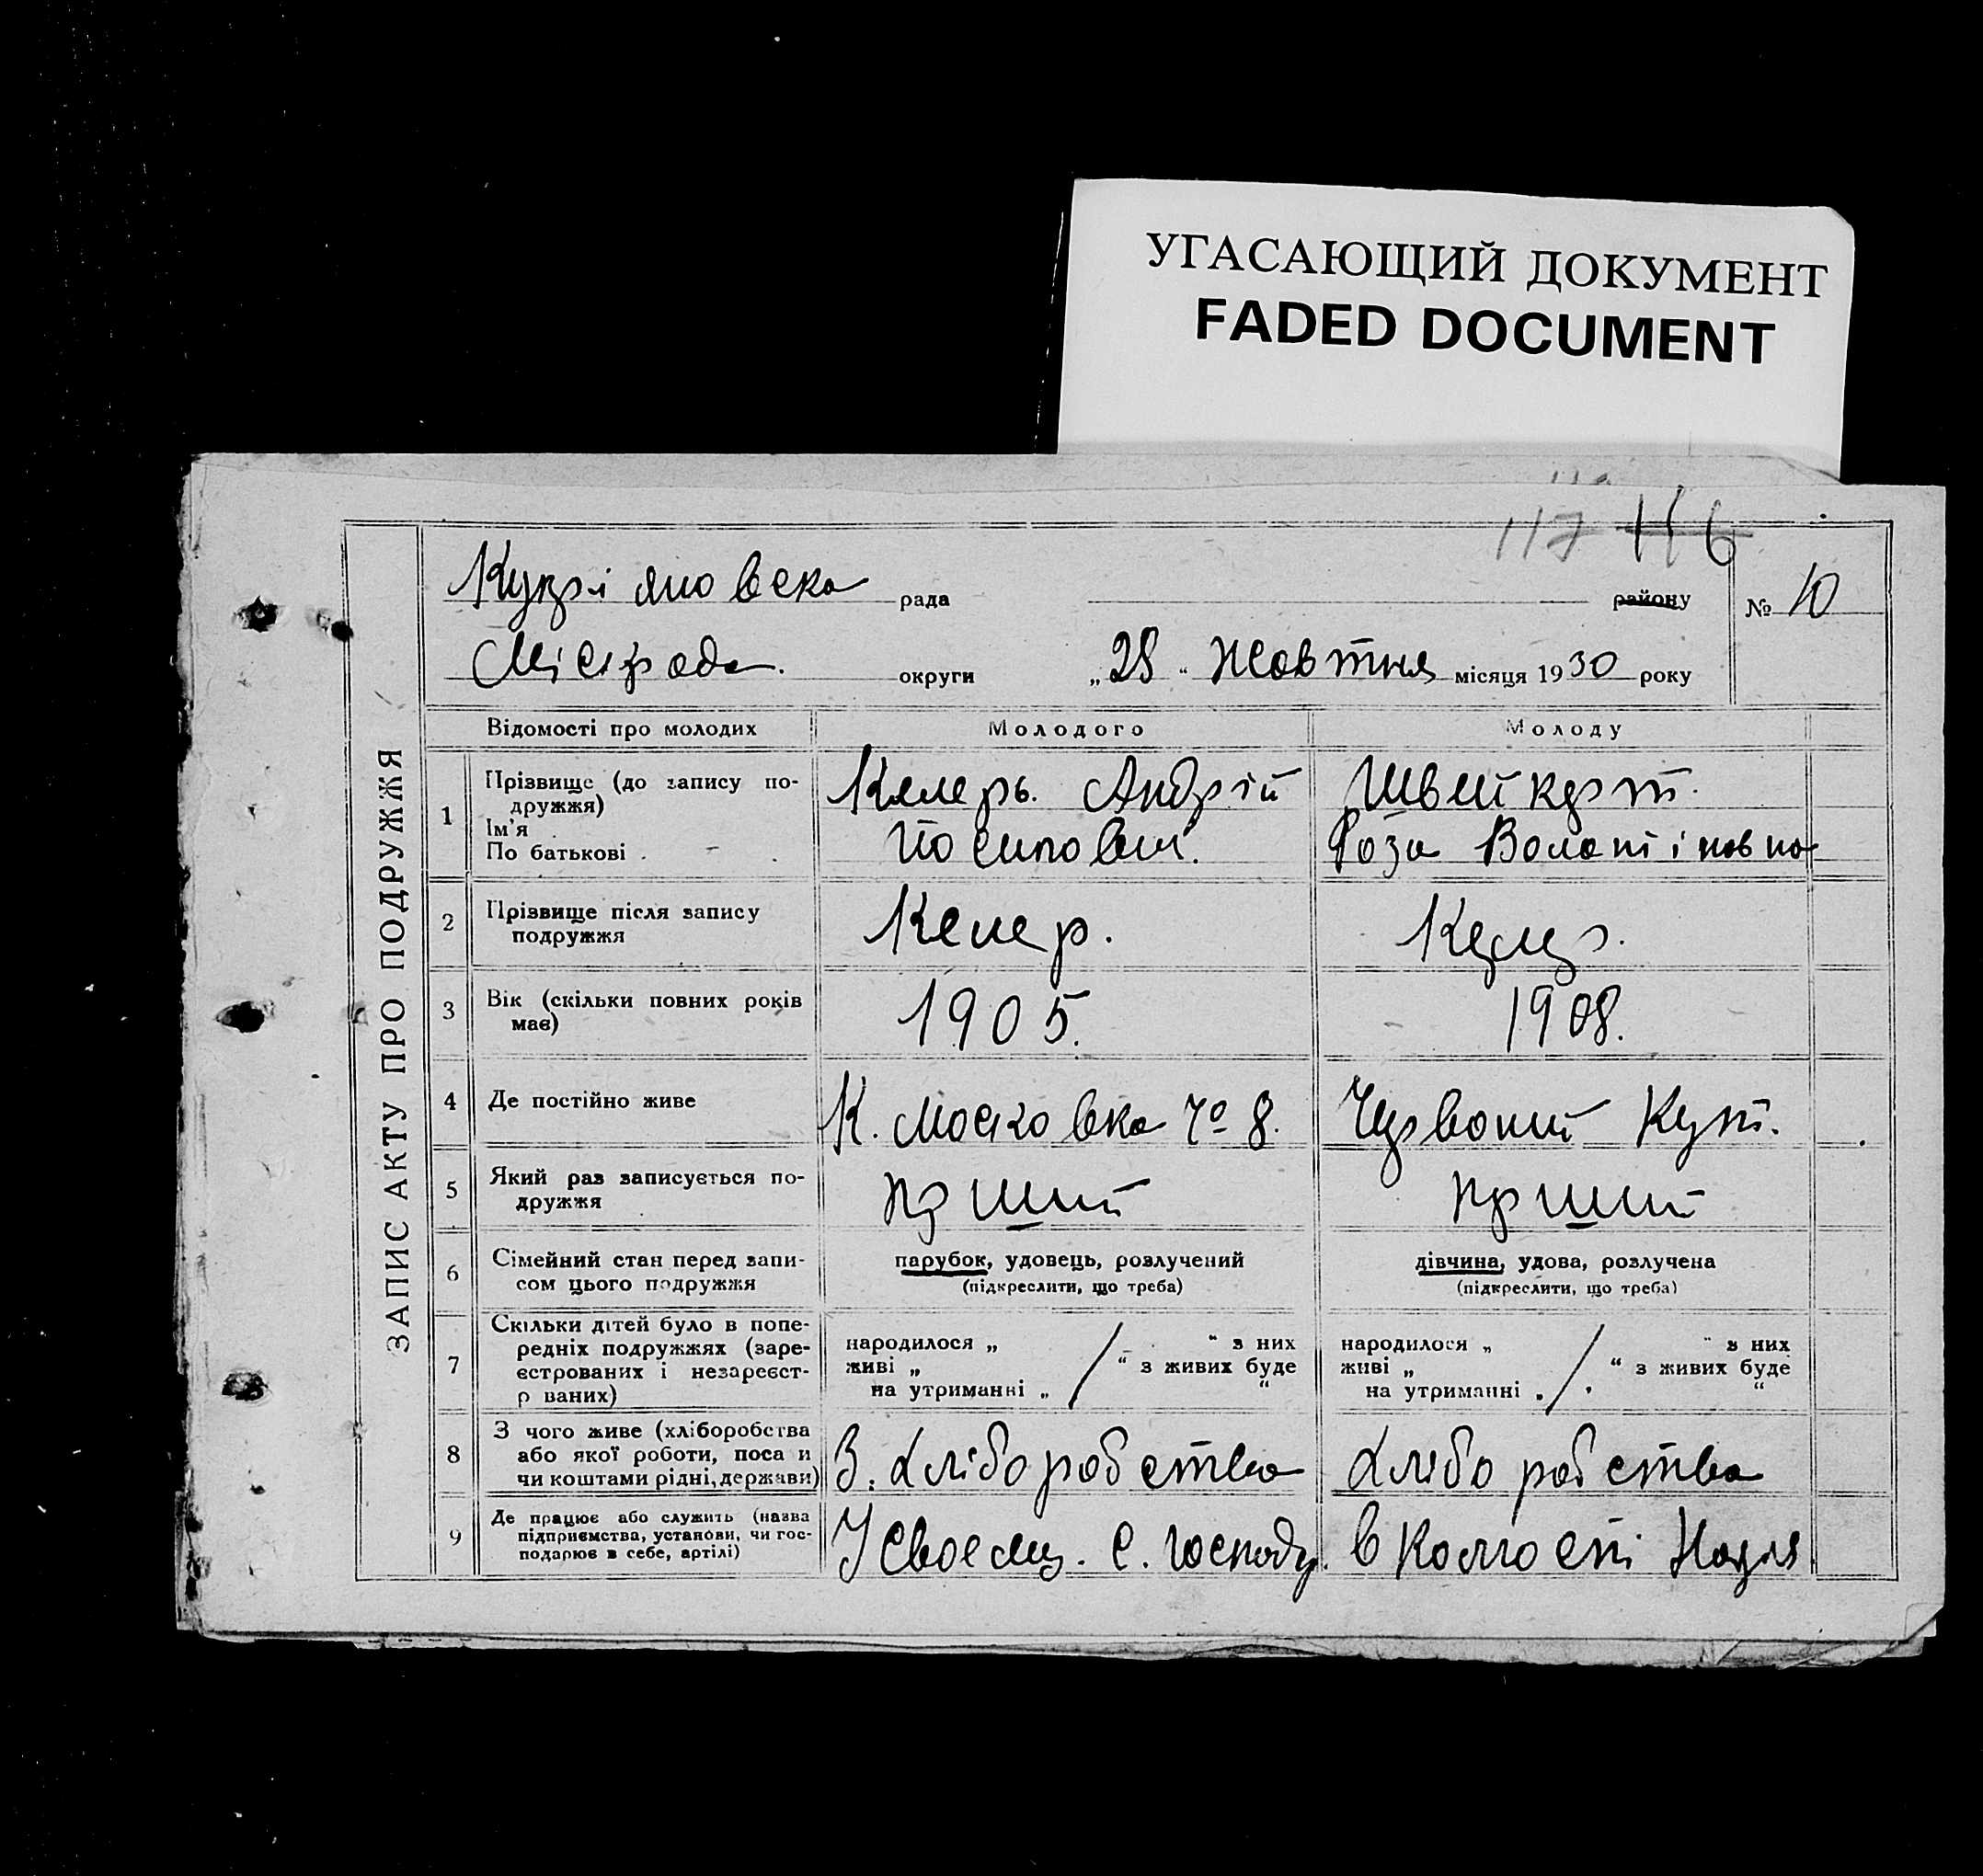 УГАСАЮЩИЙ ДОКУМЕНТ
FADED DOCUMENT
117 116
рада району № 10
округи „28“ Жовтня місяця 1930 року
ЗАПИС АКТУ ПРО ПОДРУЖЖЯ
Відомості про молодих Молодого Молоду
1 Прізвище (до запису по-
дружжя)
Ім'я
По батькові
Келерь. Андрій
Йосипович.
Швейкерт.
Роза
2 Прізвище після запису
подружжя
Келер. Келер.
3 Вік (скільки повних років
має)
1905. 1908.
4 Де постійно живе
К. Московка 8. Червоний Кут.
5 Який раз записується по-
дружжя
перший перший
6 Сімейний стан перед запи-
сом цього подружжя
парубок, удовець, розлучений
(підкреслити, що треба)
дівчина, удова, розлучена
(підкреслити, що треба)
7 Скільки дітей було в попе-
редніх подружжях (заре-
єстрованих і незареєст-
р ваних)
народилося „ “ з них
живі „ “ з живих буде
на утриманні „ “
народилося „ “ з них
живі „ “ з живих буде
на утриманні „ “
8 З чого живе (хліборобства
або якої роботи, поса и
чи коштами рідні, держави)
З. хліборобства хліборобства
9 Де працює або служить (назва
підприємства, установи, чи гос-
подарює в себе, артілі)
У своему. с. господ. в колгоспі Надія